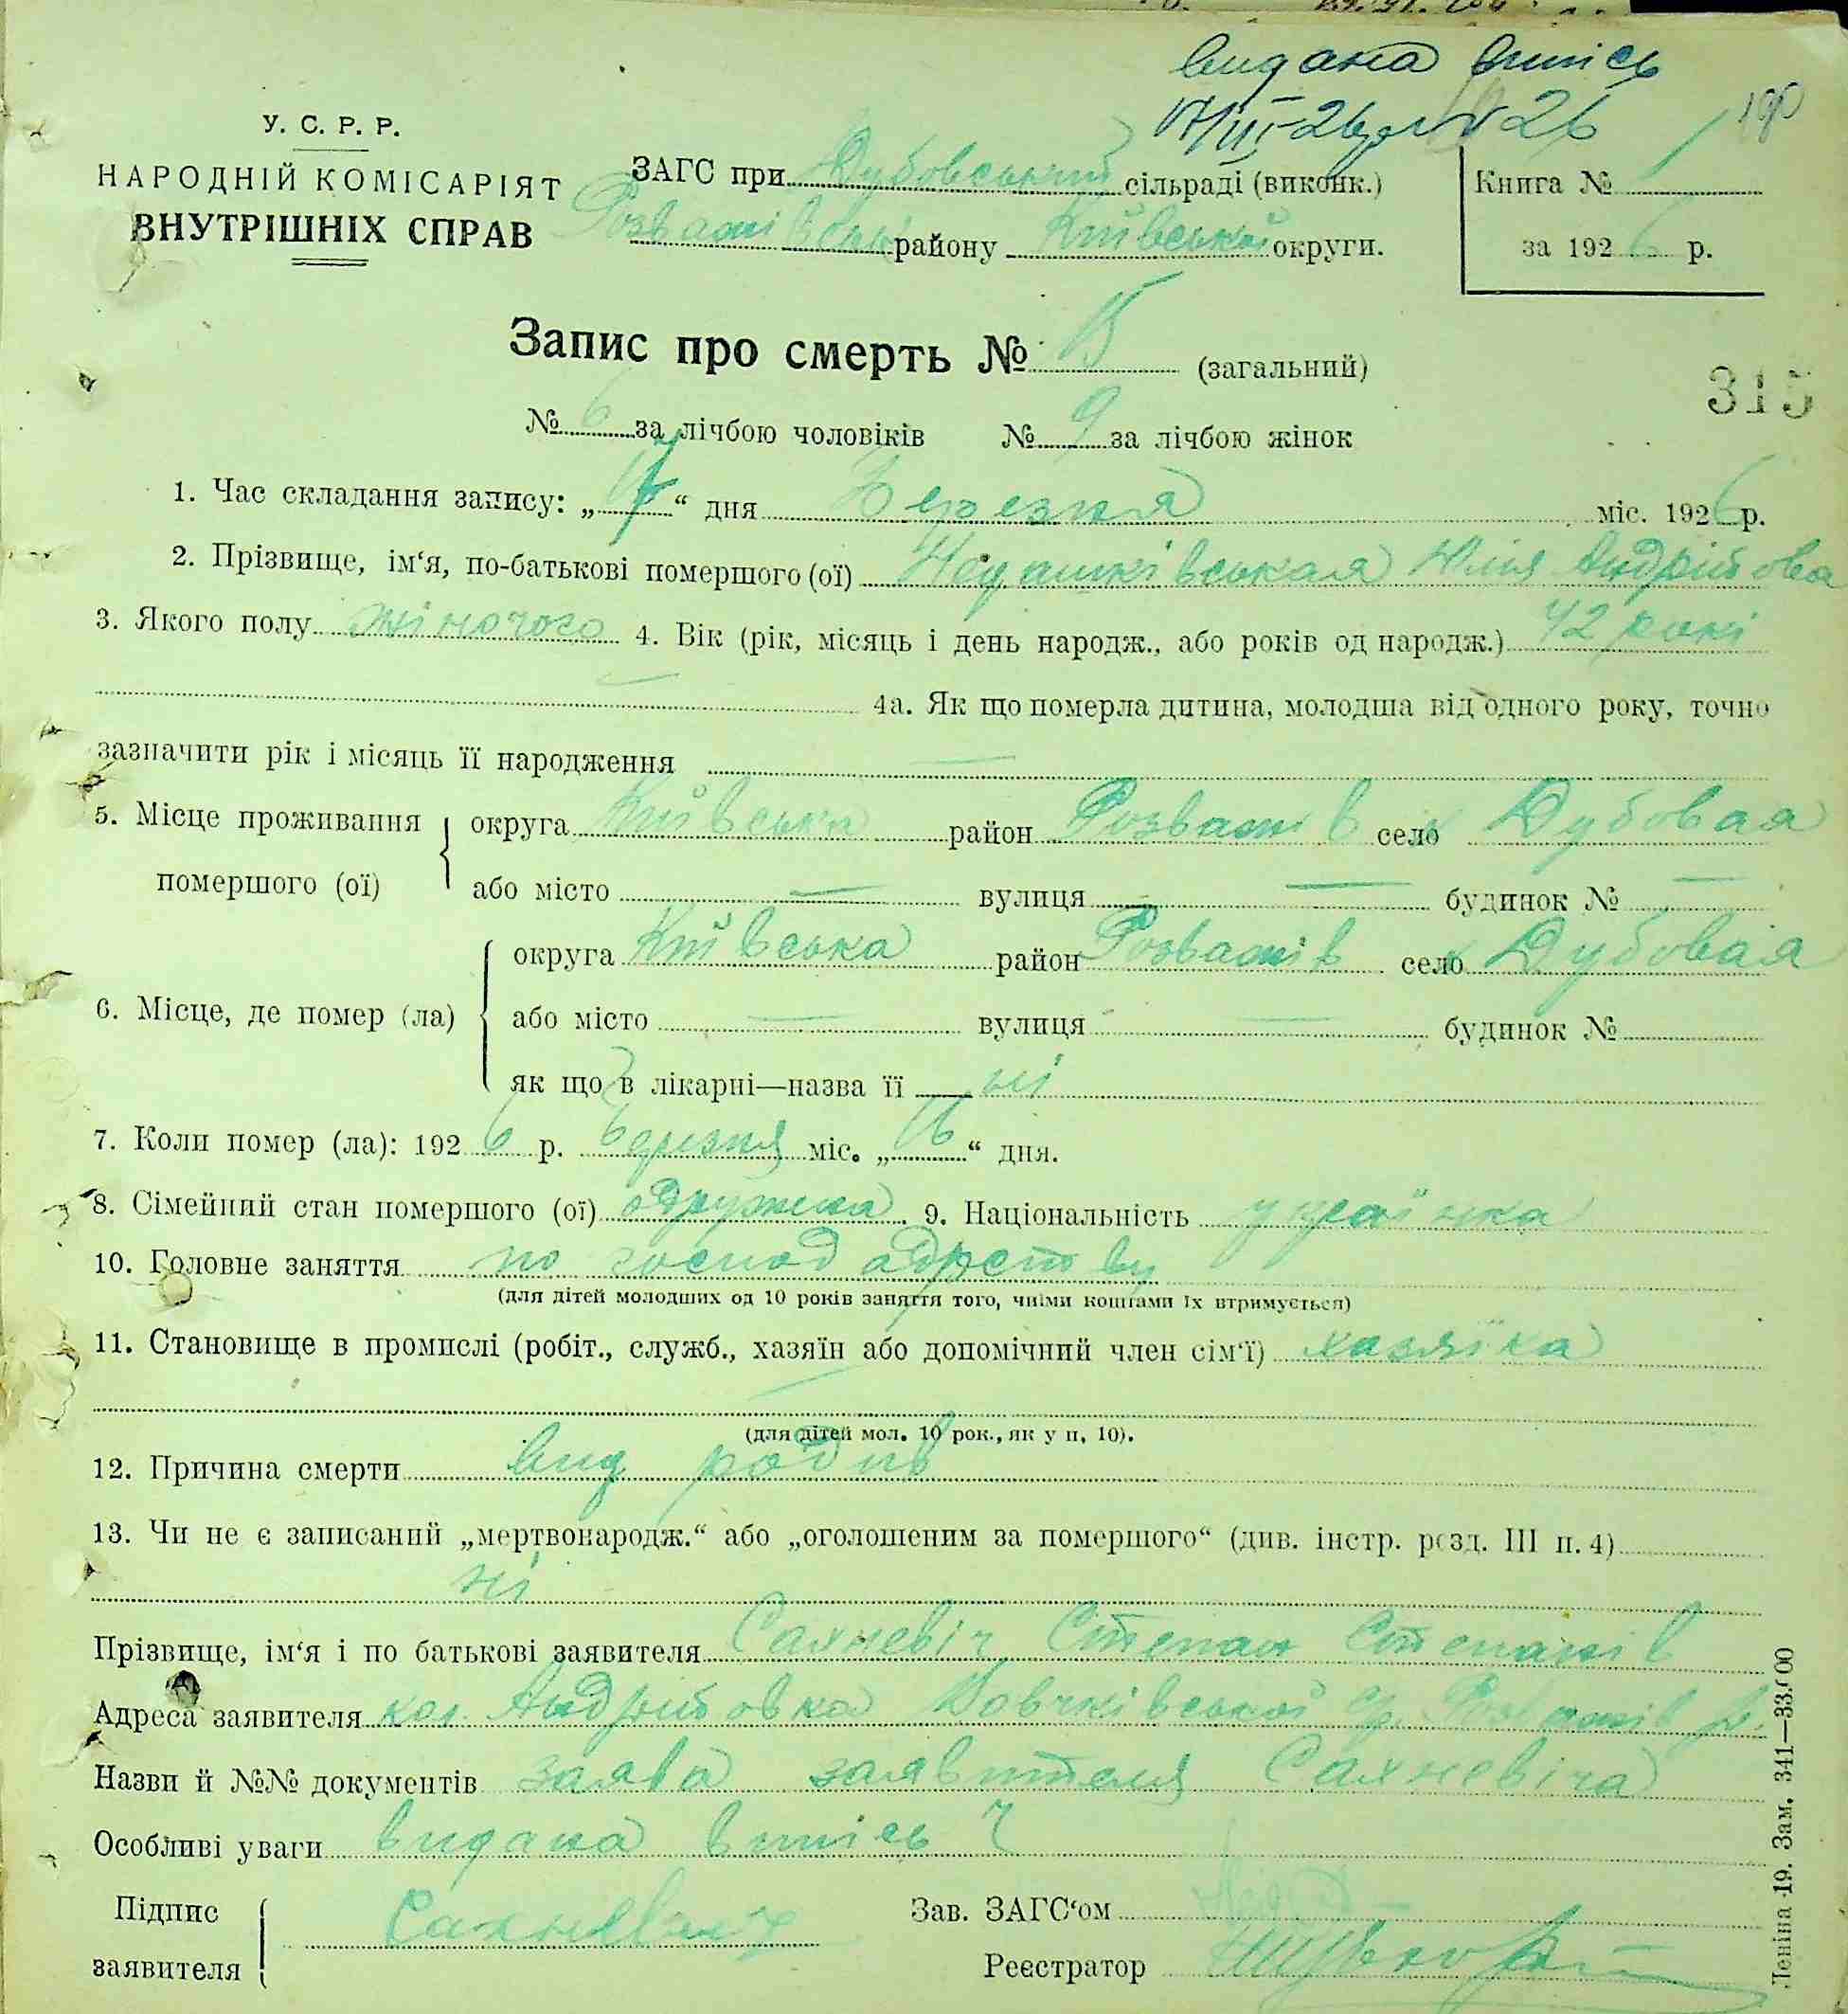 видана випісь
17/III-26 р № 26
190
У. С. Р. Р.
НАРОДНІЙ КОМІСАРІЯТ
ВНУТРІШНІХ СПРАВ
ЗАГС при Дубовській сільраді (виконк.)
Розважівськ району Київської округи.
Книга № 1
за 1926 р.
Запис про смерть № 15 (загальний)
315
№ 6 за лічбою чоловіків № 9 за лічбою жінок
1. Час складання запису: „17“ дня Березня міс. 1926 р.
2. Прізвище, ім‘я, по-батькові помершого (ої) Недашківськая Юлія Андрійова
3. Якого полу жіночого 4. Вік (рік, місяць і день народж., або років од народж.) 42 рокі
4а. Як що померла дитина, молодша від одного року, точно
зазначити рік і місяць її народження —
5. Місце проживання помершого (ої) округа Київська район Розважів село Дубовая
або місто — вулиця — будинок № —
6. Місце, де помер (ла) округа Київська район Розважів село Дубовая
або місто — вулиця — будинок №
як що в лікарні—назва її ні
7. Коли помер (ла): 1926 р. березня міс. „16“ дня.
8. Сімейний стан помершого (ої) одружена 9. Національність українка
10. Головне заняття по господарству
(для дітей молодших од 10 років заняття того, чиїми коштами їх втримується)
11. Становище в промислі (робіт., служб., хазяїн або допомічний член сім‘ї) хазяїка
(для дітей мол. 10 рок., як у п. 10).
12. Причина смерти вид родив
13. Чи не є записаний „мертвонародж.“ або „оголошеним за помершого“ (див. інстр. розд. III п. 4)
ні
Прізвище, ім‘я і по батькові заявителя Сахневіч Степан Степанів
Адреса заявителя кол. Андрійовка Вовчківської с/р. Розважів р.
Назви й №№ документів заява заявителя Сахневіча
Особливі уваги видана випісь
Підпис заявителя Сахневич
Зав. ЗАГС‘ом
Реєстратор
Леніна 19. Зам. 341—33.000